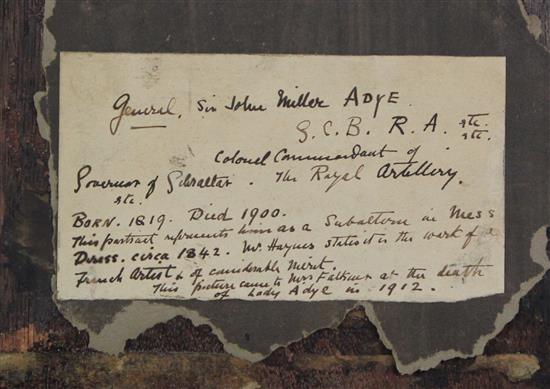 General. Sir John Miller ADYE
G. C. B. R. A. etc. etc.
Colonel Commandant of
Governor of Gibraltar. The Royal Artillery.
etc.
BORN. 1819. Died 1900.
This portrait represents him as a Subaltern in Mess
Dress. circa 1842. Mr Haynes states it is the work of a
French Artist & of considerable merit
This picture came to Mrs Falkner at the death
of Lady Adye in 1912.